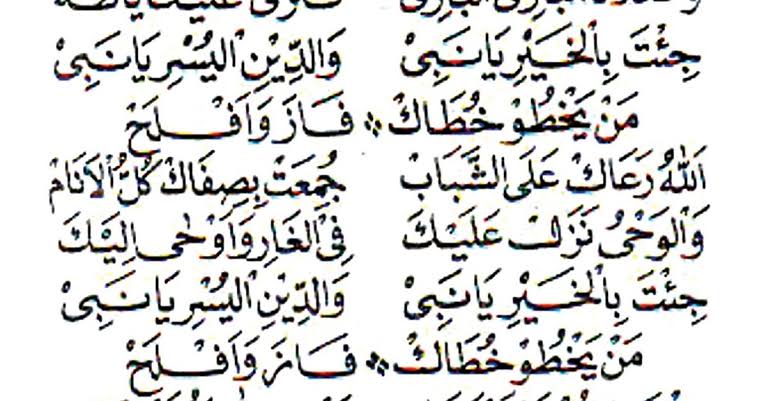 جِئْتَ بِالْخَيْرِ يَانَبِىْ وَالدِّيْنِ الْيُسْرِ يَانَبِىْ
مَنْ يَخْطُوْ خُطَاكْ ※ فَازَ وَاَفْلَحْ
اَللهُ رَعَاكْ عَلَى الشَّبَابْ جُمِعَتْ بِصِفَاكْ كُلُّ الْاَنَامْ
وَالْوَحْىُ نَزَلْ عَلَيْكَ فِى الْغَارِ وَاَوْحٰى اِلَيْكَ
جِئْتَ بِالْخَيْرِ يَانَبِىْ وَالدِّيْنِ الْيُسْرِ يَانَبِىْ
مَنْ يَخْطُوْ خُطَاكْ ※ فَازَ وَاَفْلَحْ